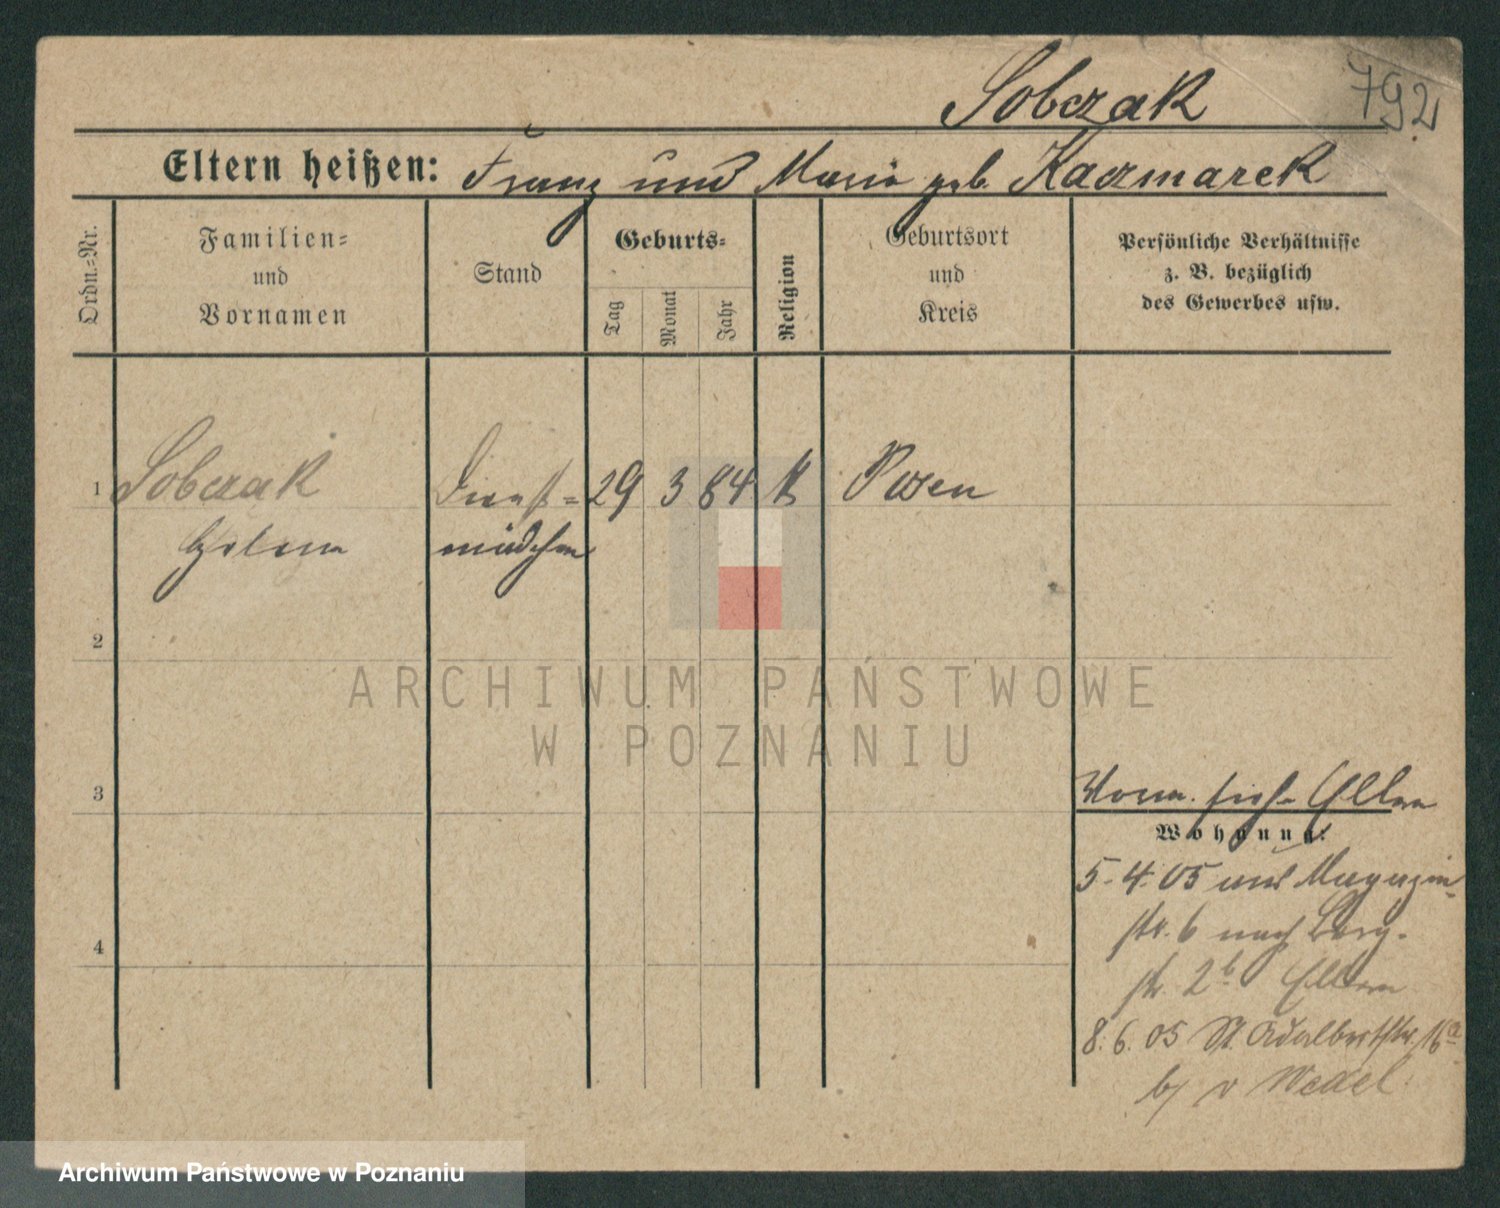 792
Sobczak
Eltern heißen: Franz und Maria geb. Kaczmarek
Ordn.=Nr.
Familien=
und
Vornamen
Stand
Geburts=
Tag
Monat
Jahr
Religion
Geburtsort
und
Kreis
Persönliche Verhältnisse
z. B. bezüglich
des Gewerbes usw.
1 Sobczak Dienst= 29 3 84 k Posen
Helena mädchen
2
ARCHIWUM PAŃSTWOWE
W POZNANIU
3
siehe Eltern
Wohnung:
5.4.05 aus Magazin=
str. 6 nach Berg-
str. 2b Eltern
4
8.6.05 St. Adalbertstr. 16a
b/ v Wedel
Archiwum Państwowe w Poznaniu